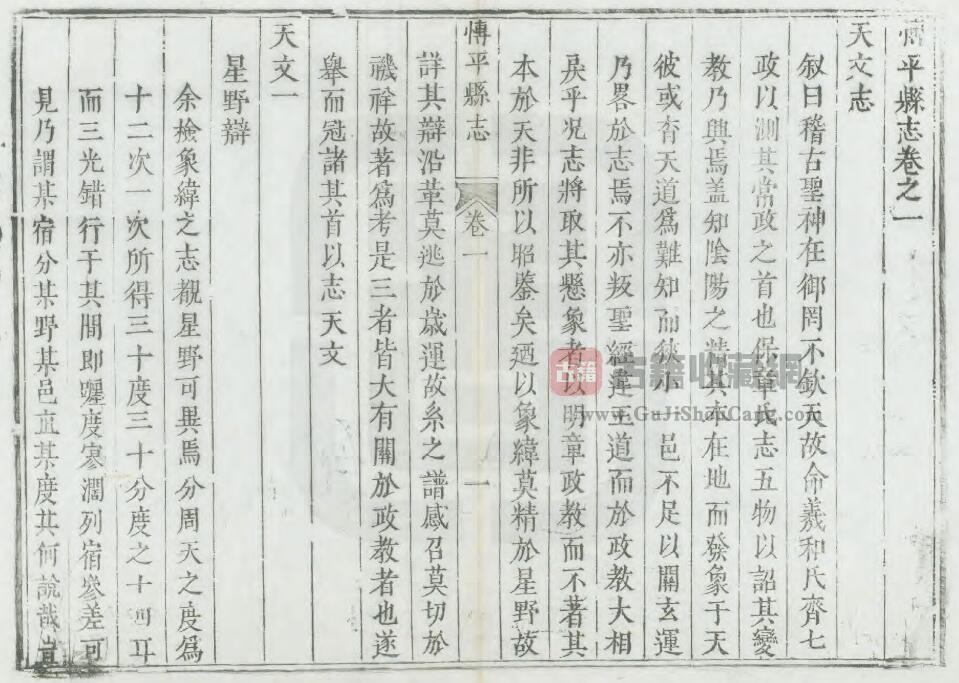 博平縣志卷之一
天文志
叙曰稽古聖神在御罔不欽天故命羲和氏齊七
政以測其常政之首也保章氏志五物以詔其變
教乃興焉盖知陰陽之精其本在地而發象于天
彼或杳天道爲難知而狹小一邑不足以關玄運
乃畧於志焉不亦叛聖經違王道而於政教大相
戾乎况志將取其懸象者以明章政教而不著其
本於天非所以昭鑒矣廼以象緯莫精於星野故
博平縣志
卷一
一
詳其辯沿革莫逃於歲運故系之譜感召莫切於
禨祥故著爲考是三者皆大有關於政教者也遂
舉而冠諸其首以志天文
天文一
星野辯
余撿象緯之志觀星野可異焉分周天之度爲
十二次一次所得三十度三十分度之十四耳
而三光錯行于其間即躔度寒濶列宿參差可
見乃謂某宿分某野某邑直某度其何說哉豈
古籍
古籍收藏網
www.GuJiShoCang.com